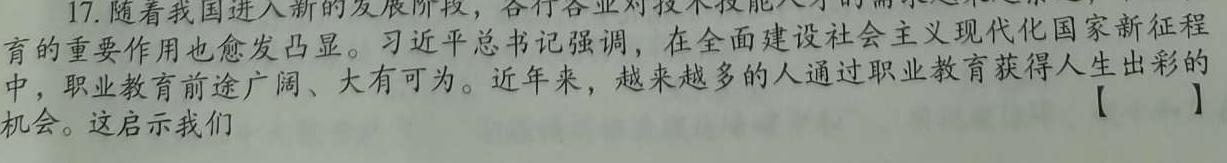 17. 随着我国进入新的发展阶段，各行各业对技术技能人才的需求越来越
育的重要作用也愈发凸显。习近平总书记强调，在全面建设社会主义现代化国家新征程
中，职业教育前途广阔、大有可为。近年来，越来越多的人通过职业教育获得人生出彩的
机会。这启示我们 【 】